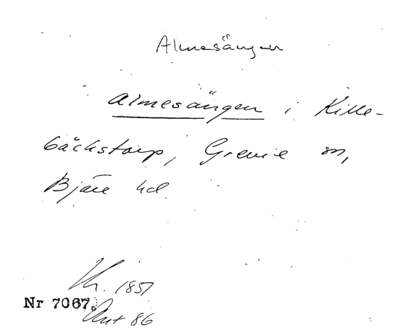 Almesängen
Almesängen i Kille-
bäckstorp, Grevie sn,
Bjäre hd
1851
Nr 7067.
86